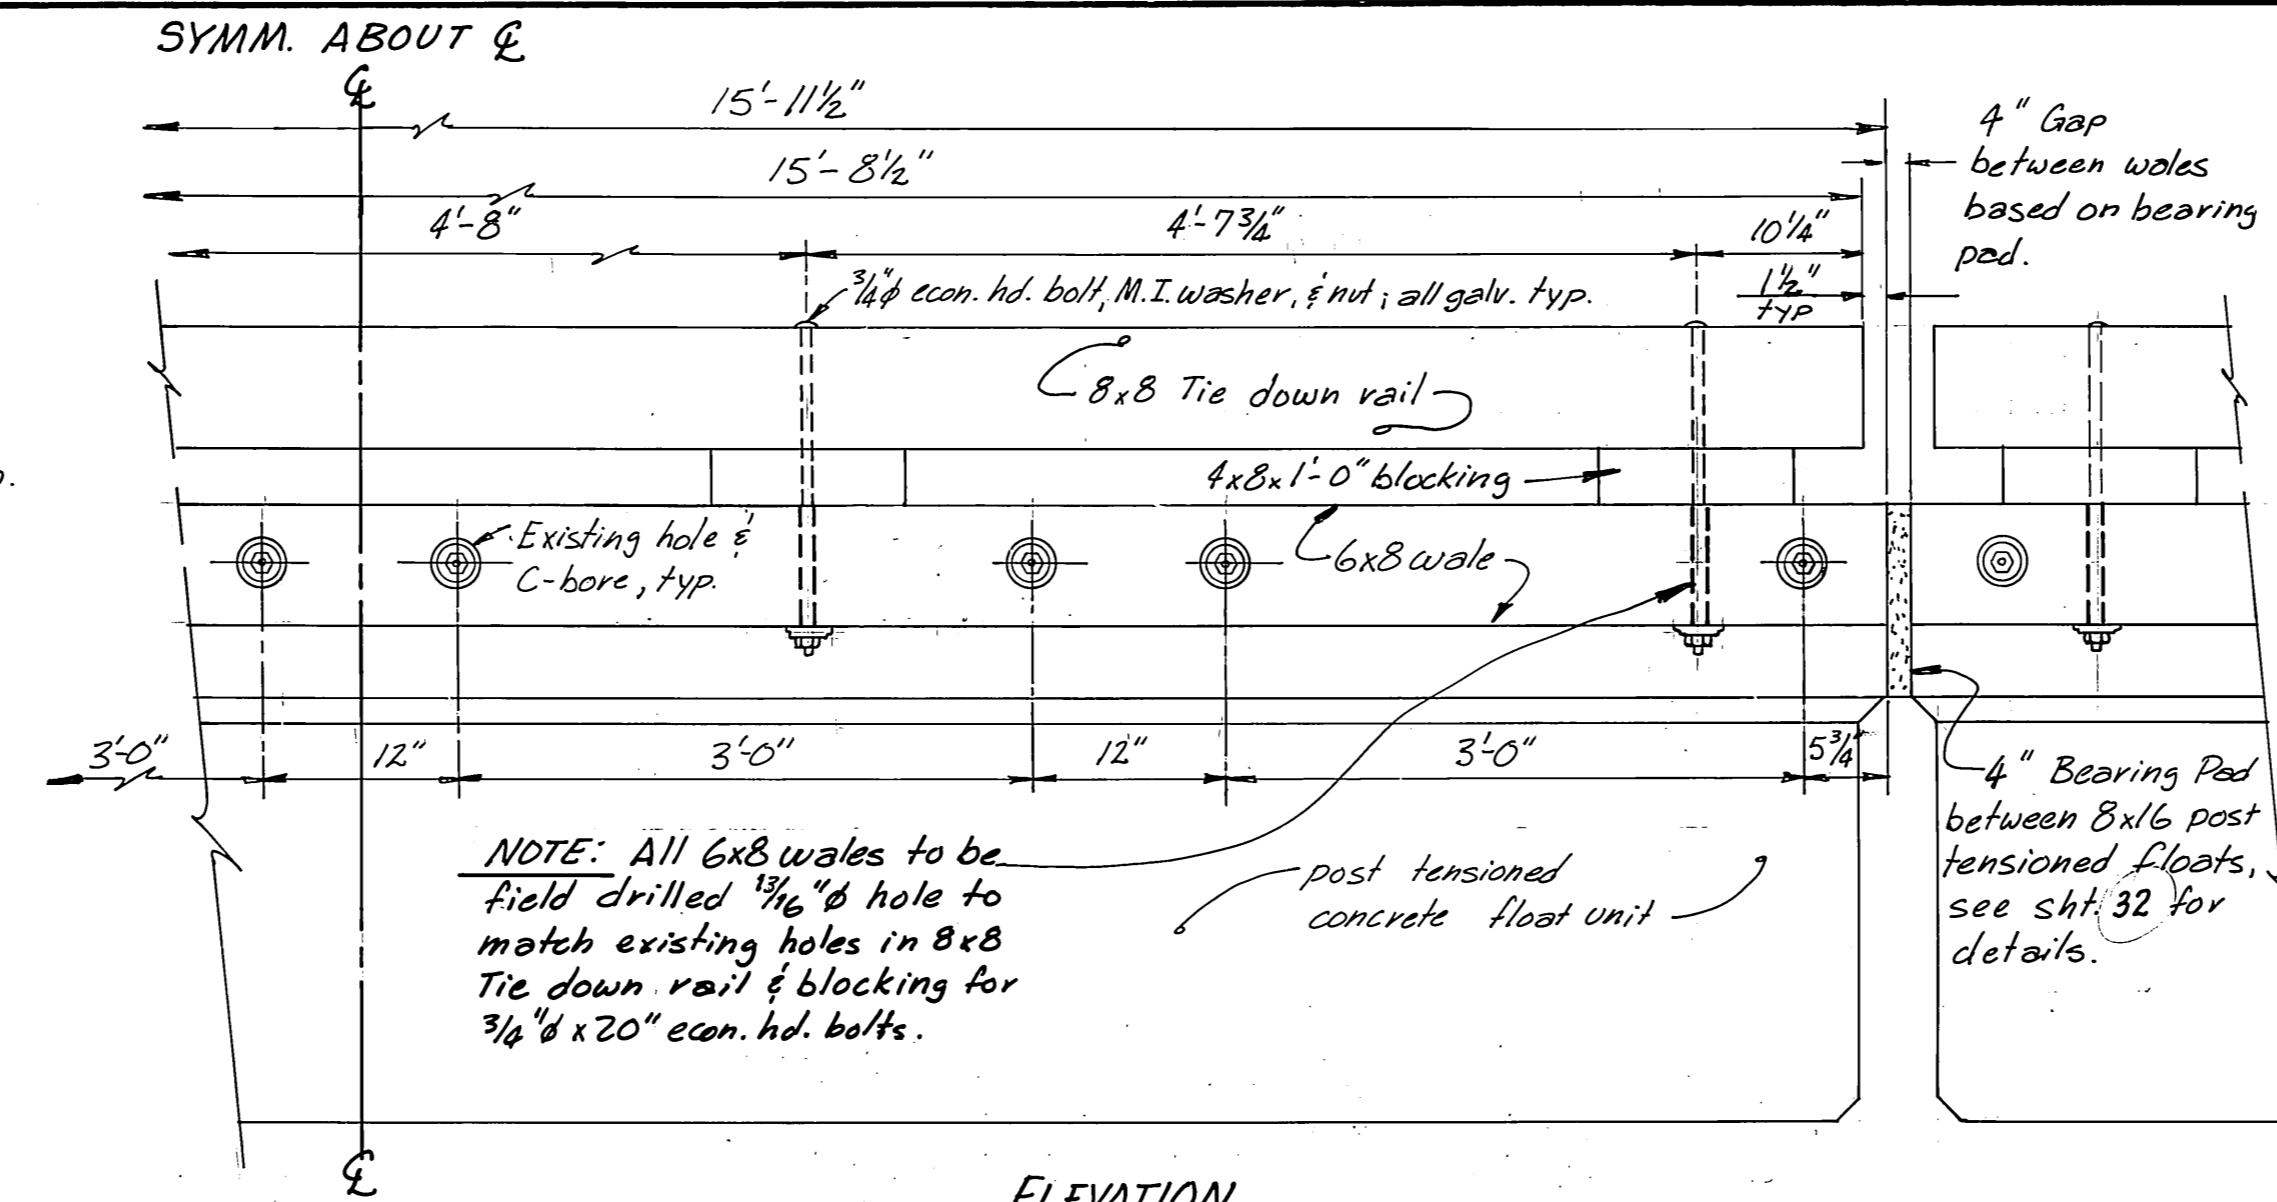 SYMM. ABOUT ℄
℄
15'-11½"
15'-8½"
4'-8"
4'-7¾"
10¼"
1½"
typ
4" Gap
between wales
based on bearing
pad.
¾"ϕ econ. hd. bolt, M.I. washer, & nut; all galv. typ.
8x8 Tie down rail
4x8x1'-0" blocking
Existing hole &
C-bore, typ.
6x8 wale
3'-0"
12"
3'-0"
12"
3'-0"
5¾"
4" Bearing Pad
between 8x16 post
tensioned floats,
see sht. 32 for
details.
NOTE: All 6x8 wales to be
field drilled 13/16"ϕ hole to
match existing holes in 8x8
Tie down rail & blocking for
¾"ϕ x 20" econ. hd. bolts.
post tensioned
concrete float unit
℄
ELEVATION